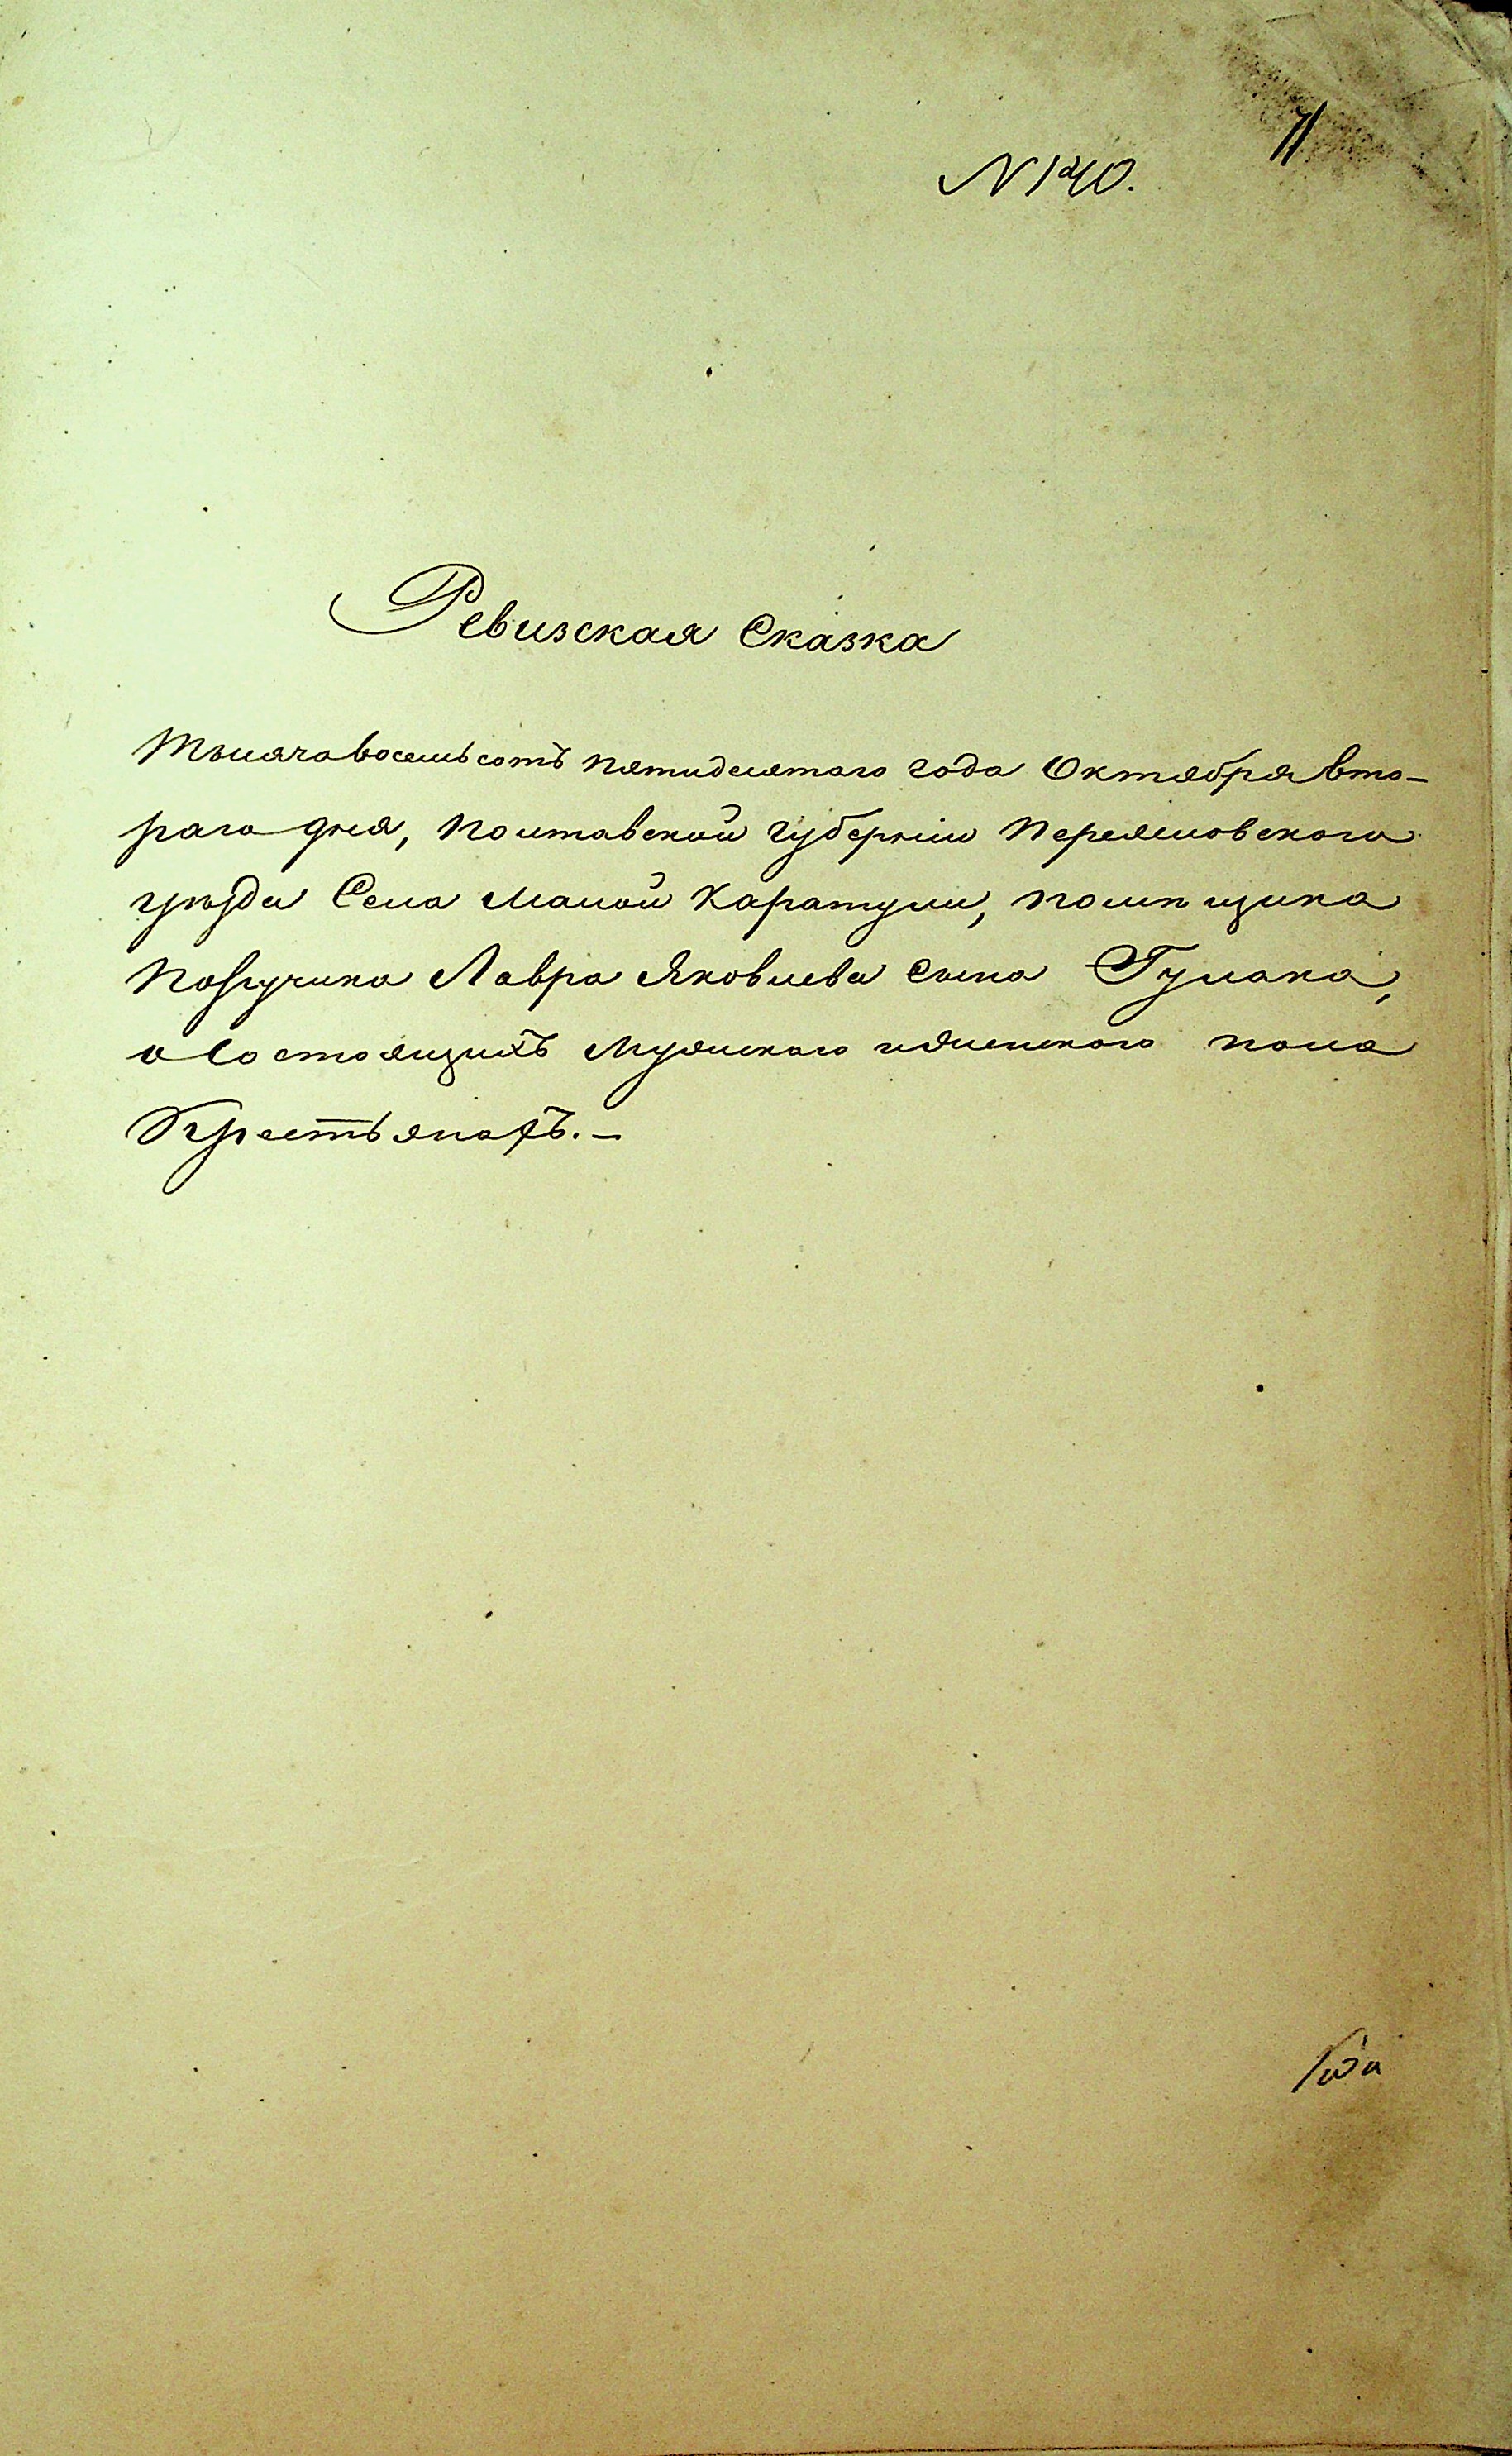 N 140.
Ревизская Сказка
Тысяча восемьсотъ пятидесятаго года Октября вто-
раго дня, Полтавской губерніи Переяславского
уѣзда Села Малой Каратули, помѣщика
Поручика Лавра Яковлева сына Гулака,
о состоящихъ мужеского и женского пола
Крестьянахъ. –